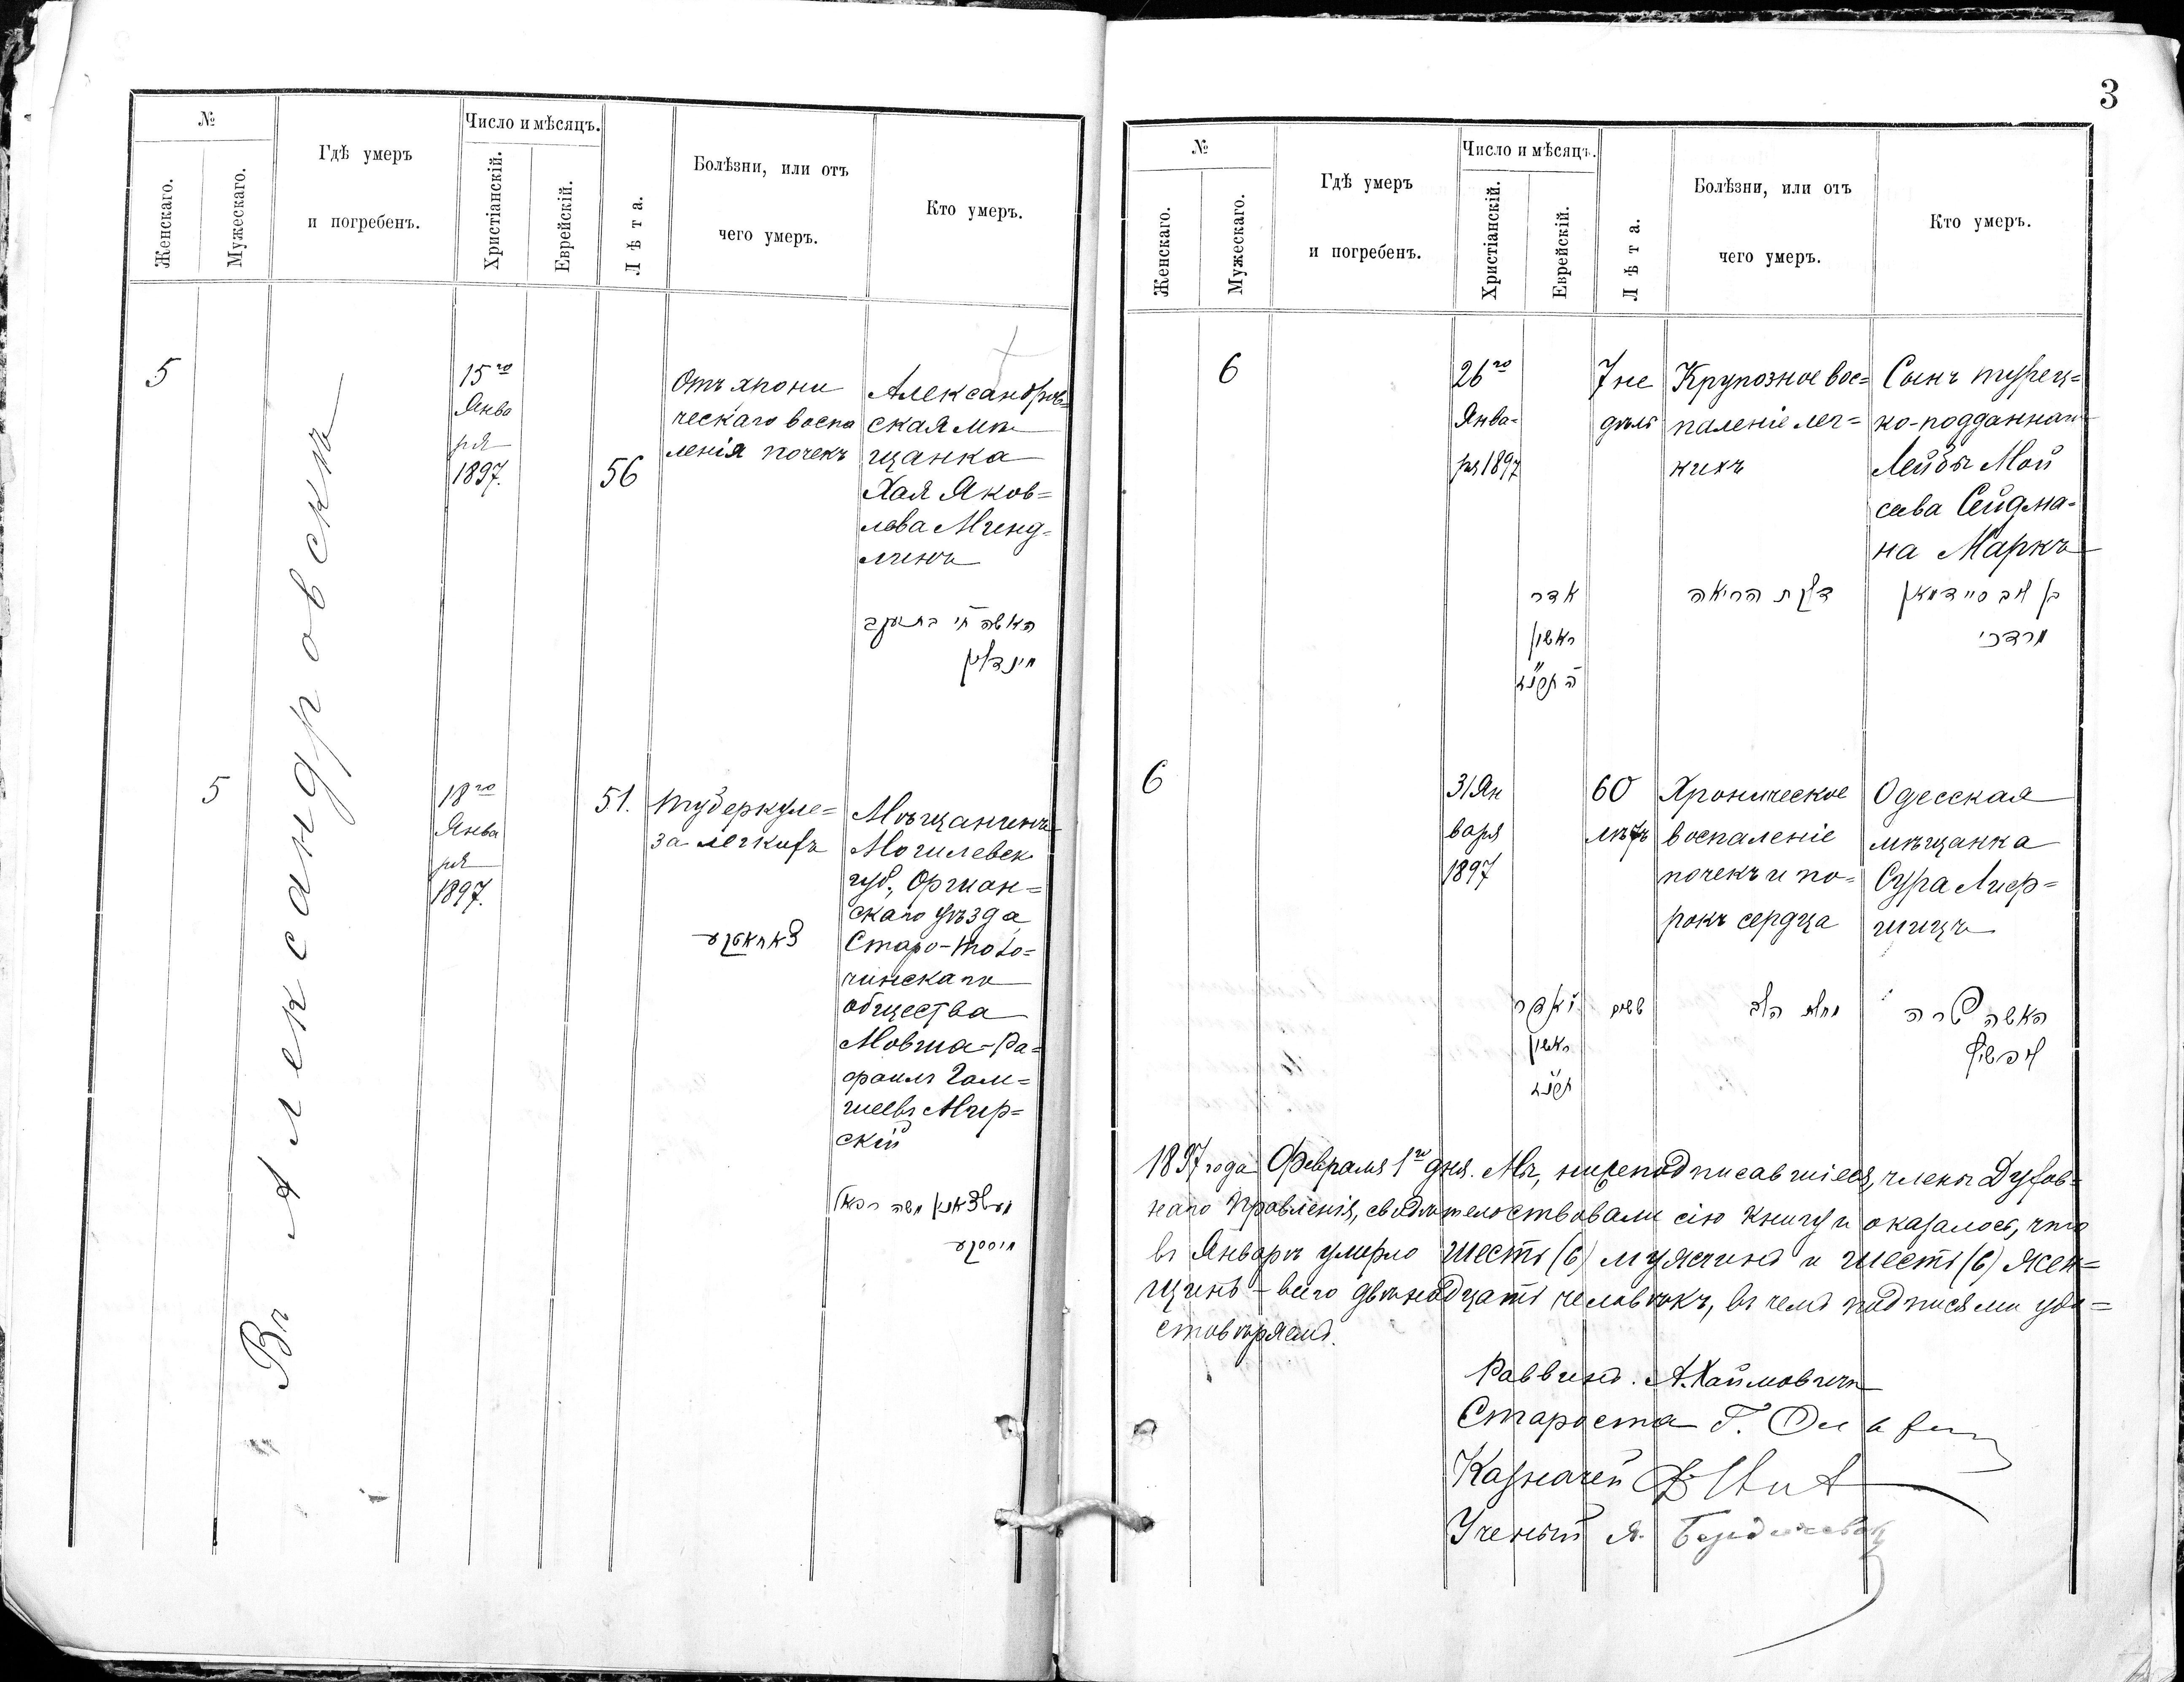 №
Женскаго.
Мужескаго.
Гдѣ умеръ
и погребенъ.
Число и мѣсяцъ.
Христіанскій.
Еврейскій.
Лѣта.
Болѣзни, или отъ
чего умеръ.
Кто умеръ.
Въ Александровскѣ
5
15го
Янва
ря
1897.
56
Отъ хрони
ческаго воспа
ленія почекъ
Александров=
ская мѣ
щанка
Хая Яков=
лева Минд=
линъ
האשה חי׳ בת יעקב
מינדלין
5
18го
Янва
ря
1897.
51.
Туберкуле=
за легкихъ
Мѣщанинъ
Могилевск
губ., Оршан=
скаго уѣзда
Старо-Толо=
чинскаго
общества
Мовша-Ра=
фаилъ
шевъ Мир=
скій
משה רפאל
3
№
Женскаго.
Мужескаго.
Гдѣ умеръ
и погребенъ.
Число и мѣсяцъ.
Христіанскій.
Еврейскій.
Лѣта.
Болѣзни, или отъ
чего умеръ.
Кто умеръ.
6
26го
Янва=
ря 1897
7 не
дѣль
Крупозное вос=
паленіе лег=
кихъ
Сынъ турец=
ко-подданнаго
Лейбы Мой
сеева Сейдма=
на Маркъ
אדר
ראשון
ה׳ תרנ״ז
דלקת הריאה
בן ליב סיידמאן
מרדכי
6
31 Ян
варя
1897
60
лѣтъ
Хроническое
воспаленіе
почекъ и по=
рокъ сердца
Одесская
мѣщанка
Сура Лиф=
шицъ
אדר
ראשון
תרנ״ז
ששים
מחלת הלב
האשה שרה
ליפשיץ
1897 года Февраля 1го дня. Мы, нижеподписавшіеся, члены Духов=
наго Правленія, свидѣтельствовали сію книгу и оказалось, что
въ Январѣ умерло шесть (6) мужчинъ и шесть (6) жен=
щинъ – всего двѣнадцать человѣкъ, въ чемъ подписями удо=
стовѣряемъ.
Раввинъ. А. Хаймовичъ
Староста Г.
Казначей
Ученый Я. Бердичевск